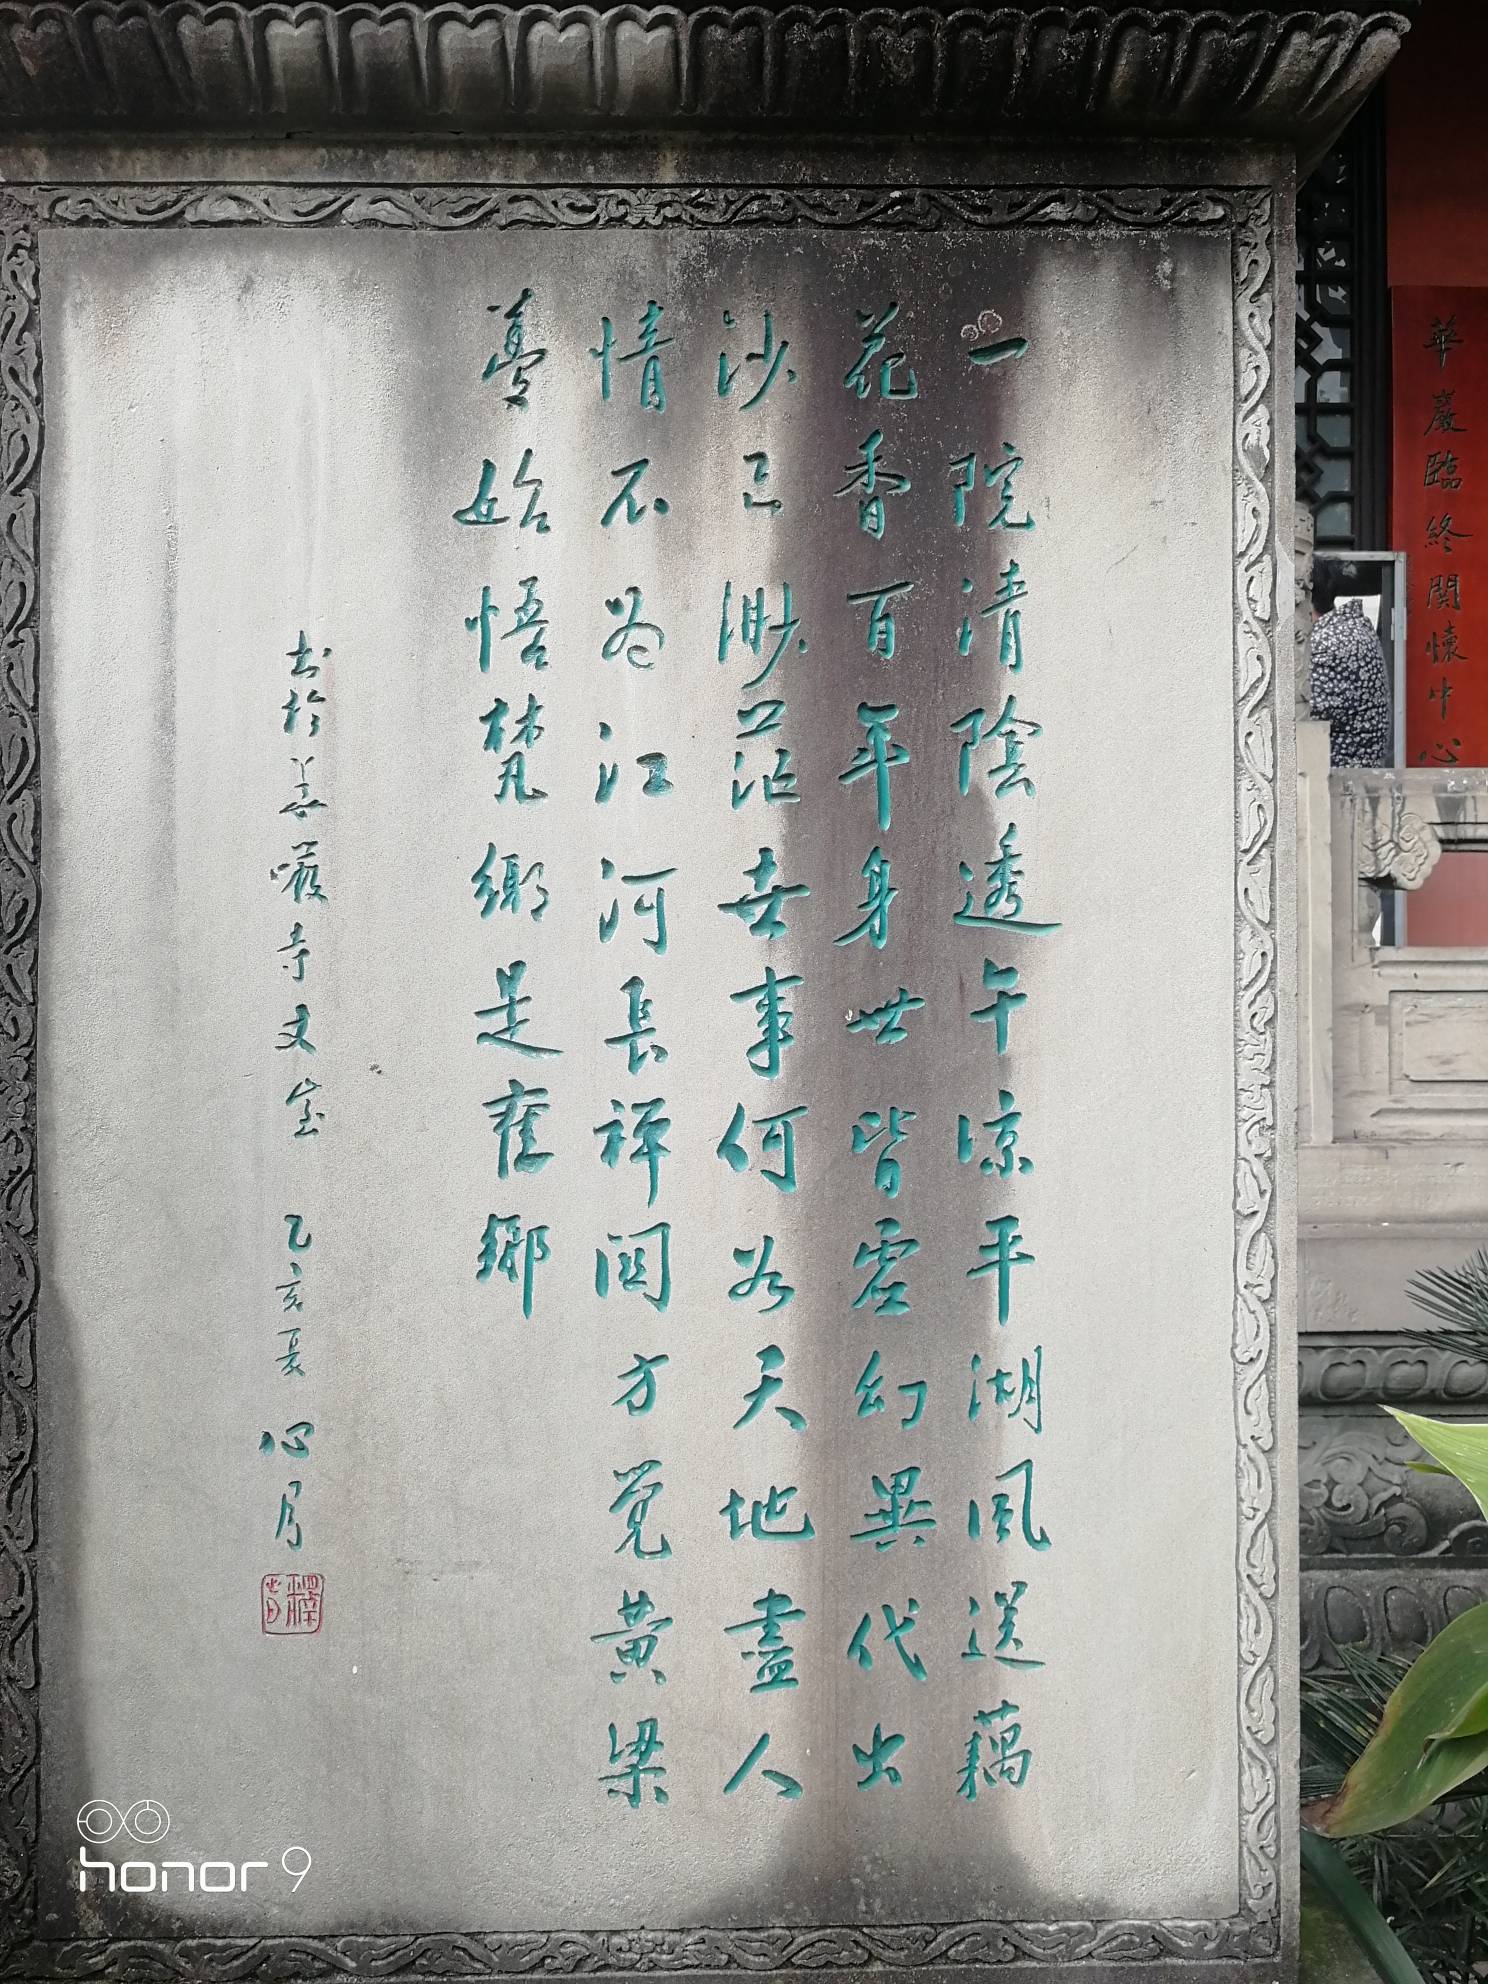 一院清陰透午凉平湖風送藕
花香百年身世皆虛幻異代出
沙已渺茫世事何天地盡人
情不為江河長禅関方覚黄梁
夢始悟梵鄉是舊鄉
書於華嚴寺丈室 乙亥夏 心月
華嚴臨終関懷中心
honor 9